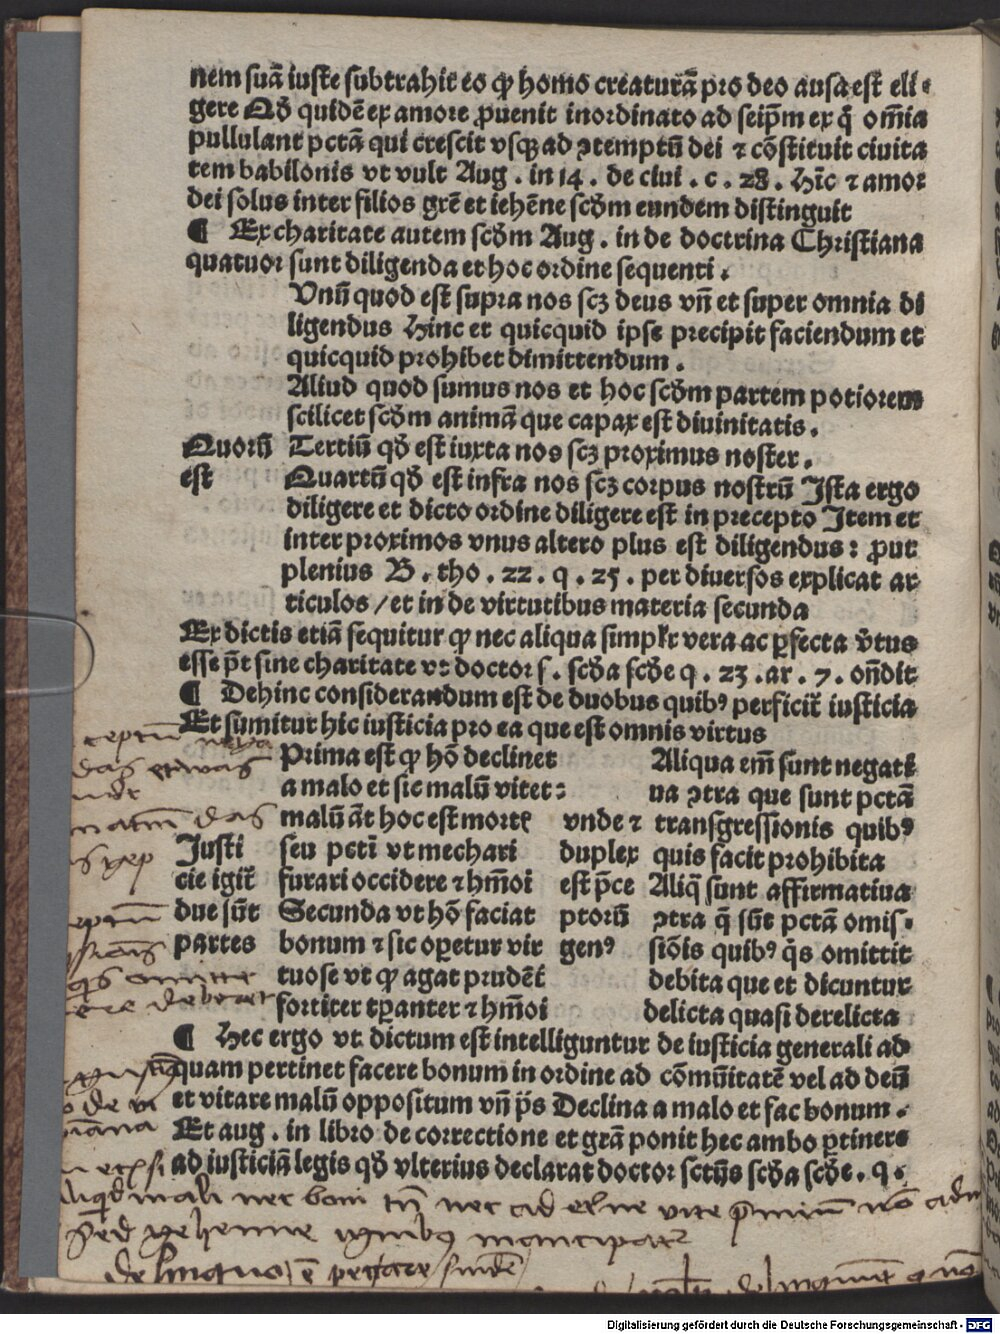 nem suā iuste subtrahit eo ꝙ homo creaturā pro deo ausa est eli⸗
gere Qd̄ quidē ex amore ꝓuenit inordinato ad seip̄m ex q̄ om̄ia
pullulant pctā qui crescit vsqꝫ ad ꝯtemptū dei ⁊ cōstituit ciuita
tem babilonis vt vult Aug . in 14 . de ciui . c . 28 . Hīc ⁊ amor
dei solus inter filios grē et iehēne scd̄m eundem distinguit
¶ Ex charitate autem scd̄m Aug . in de doctrina Christiana
quatuor sunt diligenda et hoc ordine sequenti .
Vnū quod est supra nos scꝫ deus vn̄ et super omnia di
ligendus Hinc et quicquid ipse precipit faciendum et
quicquid prohibet dimittendum .
Aliud quod sumus nos et hoc scd̄m partem potiorem
scilicet scd̄m animā que capax est diuinitatis .
Quorū Tertiū qd̄ est iuxta nos scꝫ proximus noster .
est Quartū qd̄ est infra nos scꝫ corpus nostrū Ista ergo
diligere et dicto ordine diligere est in precepto Item et
inter proximos vnus altero plus est diligendus : ꝓut
plenius B . tho . 22 . q . 25 . per diuersos explicat ar
ticulos / et in de virtutibus materia secunda
Ex dictis etiā sequitur ꝙ nec aliqua simplr̄ vera ac ꝑfecta v̄tus
esse p̄t sine charitate vt doctor s . scd̄a scd̄e q . 23 . ar . 7 . on̄dit
¶ Dehinc considerandum est de duobus quibꝰ perficit̄ iusticia
Et sumitur hic iusticia pro ea que est omnis virtus
Prima est ꝙ hō declinet Aliqua em̄ sunt negati
a malo et sic malū vitet : ua ꝯtra que sunt pctā
malū āt hoc est morte vnde ⁊ transgressionis quibꝰ
Justi seu pcti vt mechari duplex quis facit prohibita
cie igit̄ furari occidere ⁊ hm̄oi est p̄ce Aliq̄ sunt affirmatiua
due sūt Secunda vt hō faciat ptorū ꝯtra q̄ sūt pctā omis⸗
partes bonum ⁊ sic oꝑetur vir genꝰ siōis quibꝰ q̄s omittit
tuose vt ꝙ agat prudēt debita que et dicuntur
fortiter tꝑanter ⁊ hm̄oi delicta quasi derelicta
¶ Hec ergo vt dictum est intelliguntur de iusticia generali ad
quam pertinet facere bonum in ordine ad cōmūitatē vel ad deū
et vitare malū oppositum vn̄ p̄s Declina a malo et fac bonum .
Et aug . in libro de correctione et grā ponit hec ambo ꝑtinere
ad iusticiā legis qd̄ vlterius declarat doctor sctūs scd̄a scd̄e . q .
das etwas
das
omitte
de
nec boni nec ad
Sed gehenne ignibꝰ mancipat̄
delinquo ē peccare
Digitalisierung gefördert durch die Deutsche Forschungsgemeinschaft - DFG